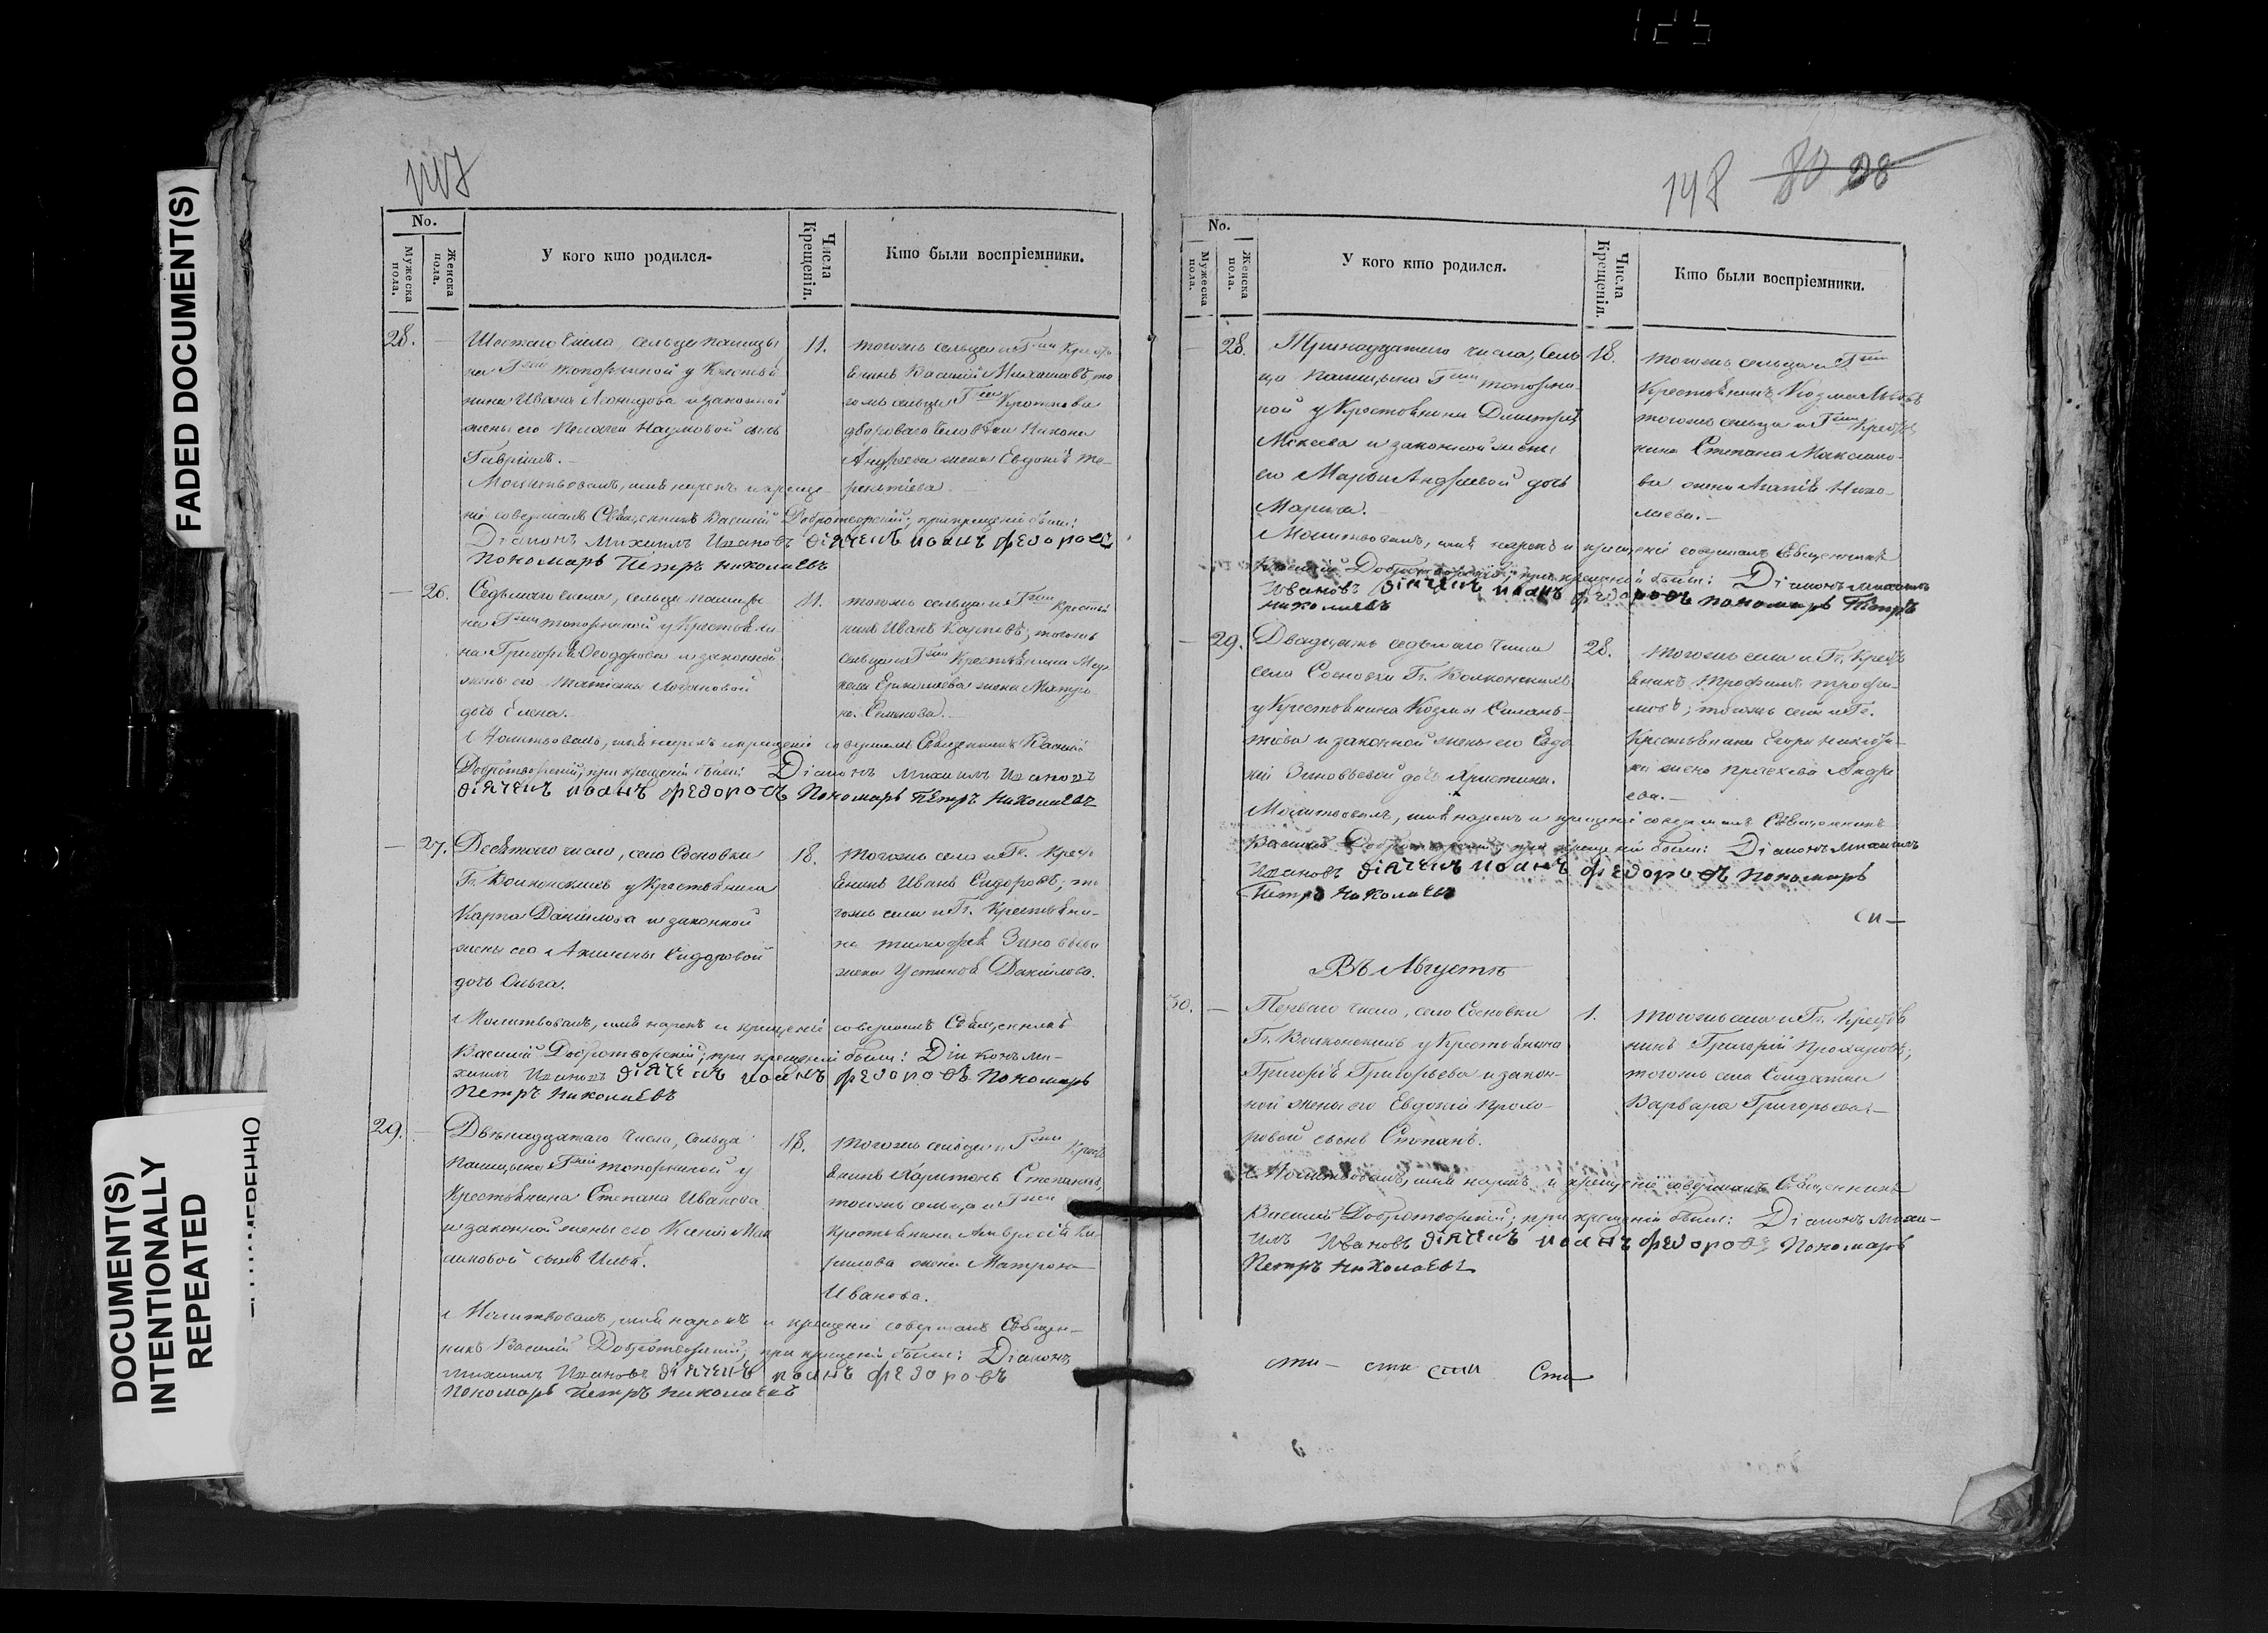 125
FADED DOCUMENT(S)
DOCUMENT(S)
INTENTIONALLY
REPEATED
147
No.
Мужеска пола.
Женска пола.
У кого кто родился.
Числа Крещенія.
Кто были воспріемники.
28.
Шестаго числа, сельца
на Гжи Топорниной у Крестья
нина Ивана Леонидова и законной
жены его Пелагеи Наумовой сынъ
Гавріилъ.
11.
тогожъ сельца и Гжи Крестья
янинъ Василій Михаиловъ, то
гожъ сельца Гжи
двороваго человѣка Никона
Андреева жена Евдокія Те-
рентіева
Молитвовалъ, имя нарекъ и креще-
ніе совершалъ Священникъ Василій Добротворскій; при крещеніи были:
Діаконъ Михаилъ Ивановъ дьячекъ Иоанъ Федоровъ
Пономарь Петръ Николаевъ
26.
Седьмаго числа, сельца
на Гжи Топорниной у Крестьяни
на Григорія Феодорова и законной
жены его Татіаны
дочь Елена.
11.
тогожъ сельца и Гжи Крестья
нинъ Иванъ Карповъ; тогожъ
сельца и Гжи Крестьянина
Ермолаева жена Матро
на Семенова.
Молитвовалъ, имя нарекъ и крещеніе совершалъ Священникъ Василій
Добротворскій; при крещеніи были: Діаконъ Михаилъ Ивановъ
дьячекъ Иоанъ Федоровъ Пономарь Петръ Николаевъ
27.
Десятаго число, села Сосновки
Гг. Волконскихъ у Крестьянина
Карпа Данилова и законной
жены его Акилины Сидоровой
дочь Ольга.
18.
тогожъ села и Гг. Крест
янинъ Иванъ Сидоровъ; то
гожъ села и Гг. Крестьяни-
на Тимофея Зиновьева
жена Устинья Данилова.
Молитвовалъ, имя нарекъ и крещеніе совершалъ Священникъ
Василій Добротворскій; при крещеніи были: Діаконъ Ми-
хаилъ Ивановъ дьячекъ Иоанъ Федоровъ Пономарь
Петръ Николаевъ
29.
Двѣнадцатаго числа, сельца
Гжи Топорниной у
Крестьянина Степана Иванова
и законной жены его Ксеніи Мак
симовой сынъ Илья.
18.
тогожъ сельца и Гжи Крест
янинъ Харитонъ Степановъ,
тогожъ сельца и Гжи
Крестьянина Амвросія Ки
рилова жена Матрона
Иванова.
Молитвовалъ, имя нарекъ и крещеніе совершалъ Священ-
никъ Василій Добротворскій; при крещеніи были: Діаконъ
Михаилъ Ивановъ дьячекъ Иоанъ Федоровъ
Пономарь Петръ Николаевъ
148 80 28
No.
Мужеска пола.
Женска пола.
У кого кто родился.
Числа Крещенія.
Кто были воспріемники.
28.
Тринадцатаго числа, Сель
ца Гжи Топорни
ной у Крестьянина Димитрія
Мокеева и законной жены
его Марьи Андреевой дочь
Марина.
18.
тогожъ сельца и Гжи
Крестьянинъ Козма
тогожъ сельца и Гжи Крестья
нина Степана Максимо-
ва жена Агапія Нико-
лаева.
Молитвовалъ, имя нарекъ и крещеніе совершалъ Священникъ
Василій Добротворскій; при крещеніи были: Діаконъ Михаилъ
Ивановъ дьячекъ Иоанъ Федоровъ Пономарь Петръ
Николаевъ
29.
Двадцать седьмаго числа
села Сосновки Гг. Волконскихъ
у Крестьянина Козмы Силань-
тьева и законной жены его Евдо
кіи Зиновьевой дочь Христина.
28.
тогожъ села и Гг. Кресть
янинъ Трофимъ Трофи-
мовъ; тогожъ села и Гг.
Крестьянина Егора
жена Андре
ева.
Молитвовалъ, имя нарекъ и крещеніе совершалъ Священникъ
Василій Добротворскій; при крещеніи были: Діаконъ Михаилъ
Ивановъ дьячекъ Иоанъ Федоровъ Пономарь
Петръ Николаевъ
Въ Августѣ
30.
Перваго число, село Сосновки
Гг. Волконскихъ у Крестьянина
Григорія Григорьева и закон-
ной жены его Евдокіи Прохо-
ровой сынъ Степанъ.
1.
тогожъ села и Гг. Крестья
нинъ Григорій Прохоровъ;
тогожъ села Солдатка
Варвара Григорьева.
Молитвовалъ, имя нарекъ и крещеніе совершалъ Священникъ
Василій Добротворскій; при крещеніи были: Діаконъ Миха-
илъ Ивановъ дьячекъ Иоанъ Федоровъ Пономарь
Петръ Николаевъ